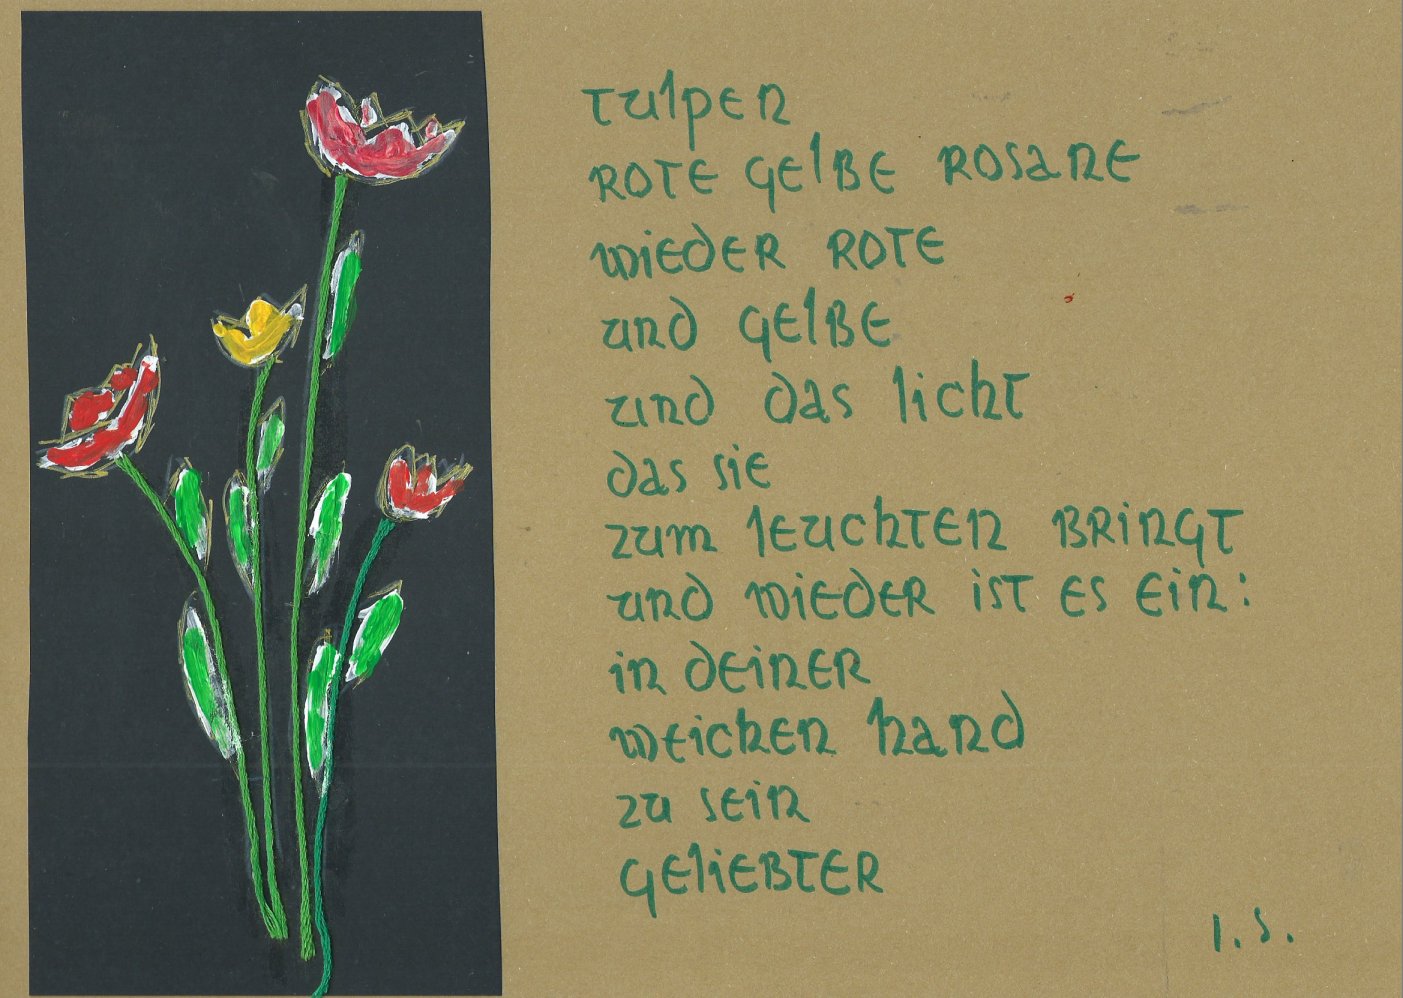 Tulpen
ROTE GElBE ROSANE
wiEDER ROTE
und GElBE
und das licht
das siE
zum lEuchTEN BRiNGT
und wiEDER isT ES Ein:
in DEiNER
wEichEn hand
zu sEin
GEliEBTER
I.S.